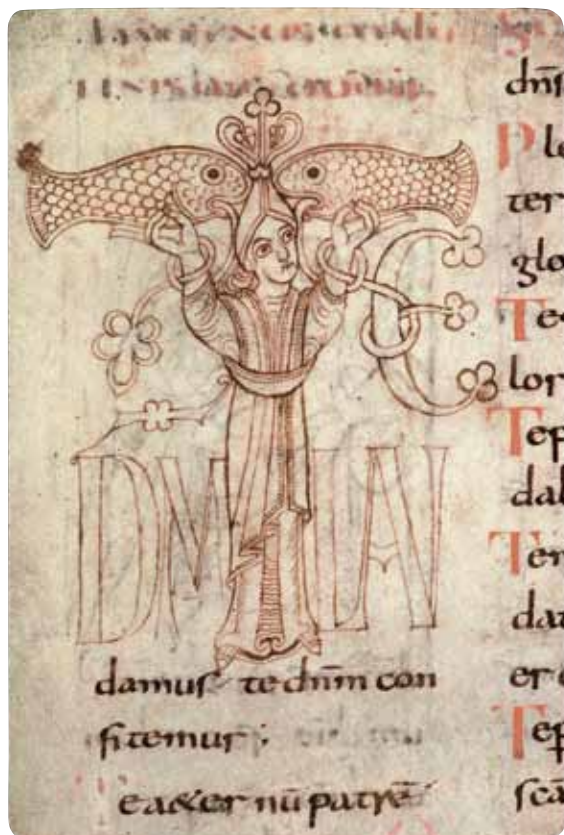 TE
DM LAU
damus te dn̄m con
fitemur ;
ea&ernū patrē
dn̄s
Ple
ter
glo
Te
lor
Tep
dab
Tem
dat
er
Tep
scā